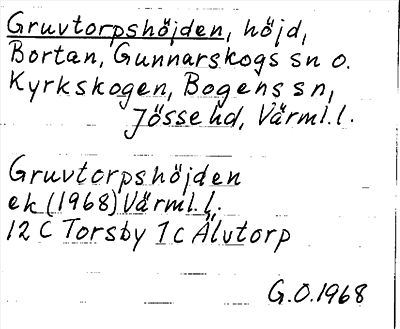 Gruvtorpshöjden, höjd,
Bortan, Gunnarskogs sn o.
Kyrkskogen, Bogens sn,
Jösse hd, Värml.l.
Gruvtorpshöjden
ek (1968) Värml.l.
12 C Torsby 1c Älvtorp
G.O.1968